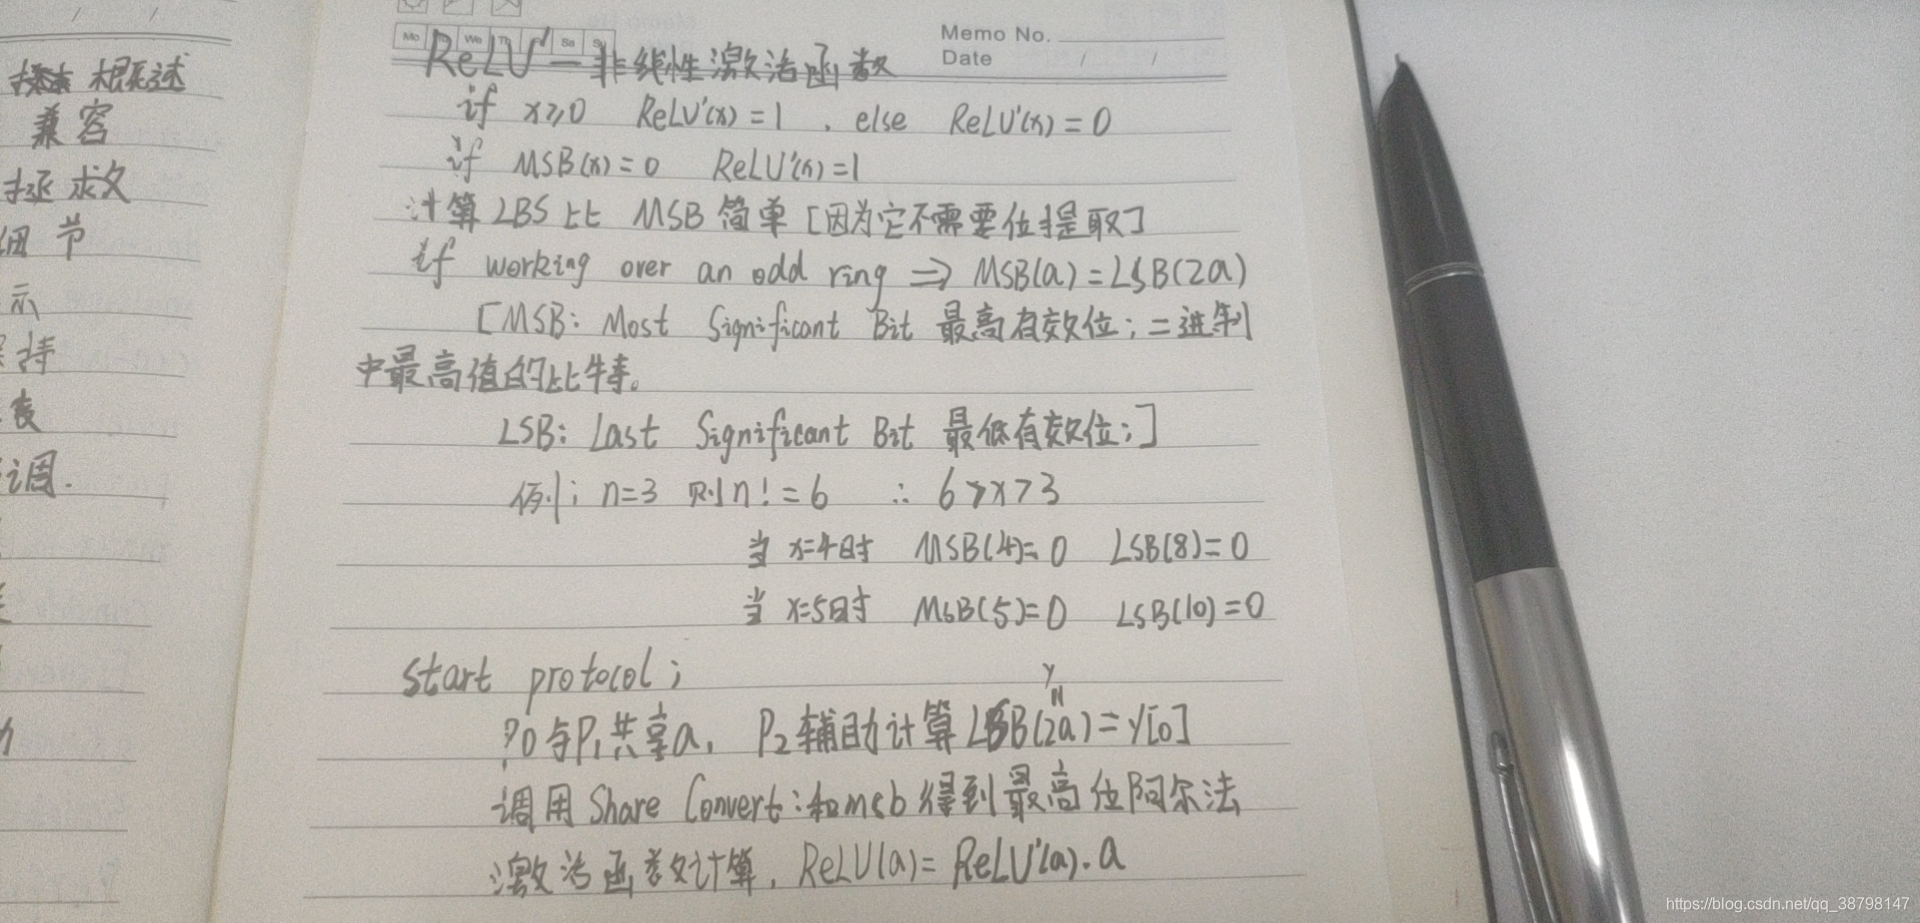 概述
兼容
拯救
细节
示
持
衰
调.
Mo We Th Sa S
Memo No.
Date / /
ReLU' — 非线性激活函数
if x≥0 ReLU'(x)=1 , else ReLU'(x)=0
if MSB(x)=0 ReLU'(x)=1
计算LBS比 MSB 简单[因为它不需要位提取]
if working over an odd ring ⇒ MSB(a)=LSB(2a)
[MSB: Most Significant Bit 最高有效位;二进制
中最高值的比特。
LSB: Last Significant Bit 最低有效位;]
例: n=3 则n!=6 ∴ 6>x>3
当 x=4时 MSB(4)=0 LSB(8)=0
当 x=5时 MSB(5)=0 LSB(10)=0
start protocol;
y
P0与P1共享a, P2辅助计算LSB(2a)=y[0]
调用 Share Convert:和msb得到最高位阿尔法
激活函数计算, ReLU(a)= ReLU'(a)·a
https://blog.csdn.net/qq_38798147